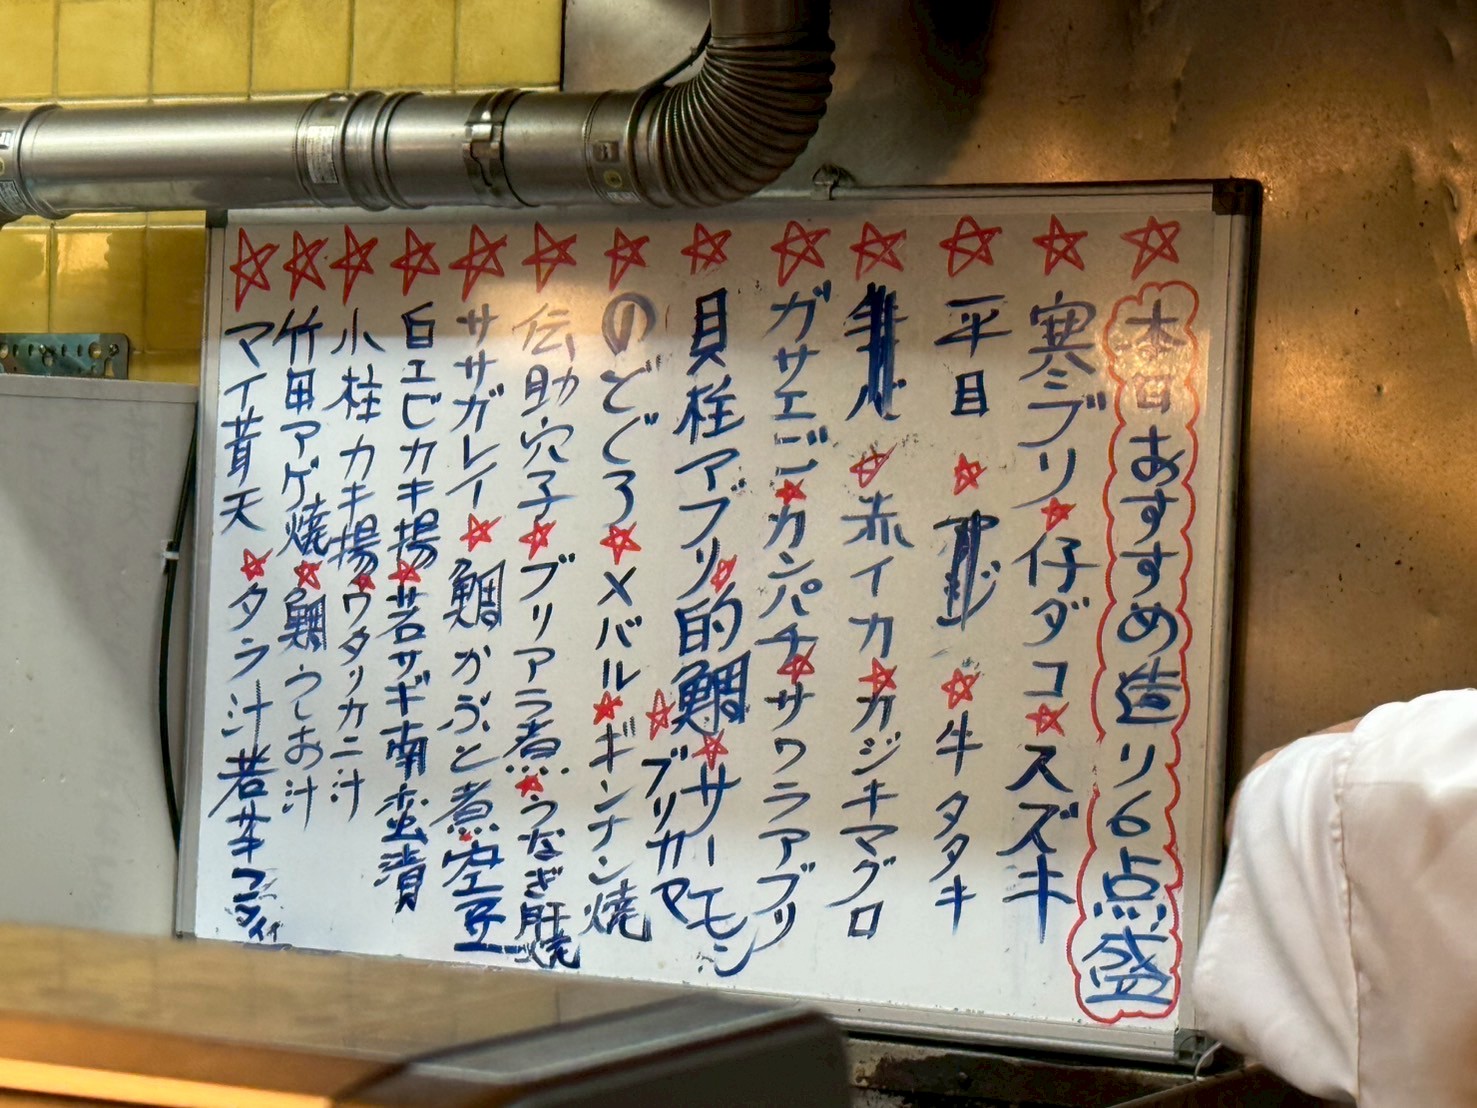 ☆本日おすすめ造り6点盛
☆寒ブリ☆仔ダコ☆スズキ
☆平目☆☆牛タタキ
☆☆赤イカ☆カジキマグロ
☆ガサエビ☆カンパチ☆サワラアブリ
☆貝柱アブリ☆的鯛☆サーモン
☆ブリカマ
☆のどぐろ☆メバル☆ギンナン焼
☆伝助穴子☆ブリアラ煮☆うなぎ肝焼
☆ササガレイ☆鯛かぶと煮☆空豆
☆白エビカキ揚☆若サギ南蛮漬
☆小柱カキ揚☆ワタリカニ汁
☆竹田アゲ焼☆鯛うしお汁
☆マイ茸天☆タラ汁